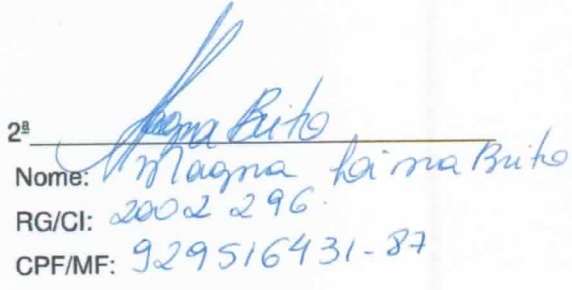 2ª Magna Brito
Nome: Magna Laima Brito
RG/CI: 2002 296.
CPF/MF: 929516431-87